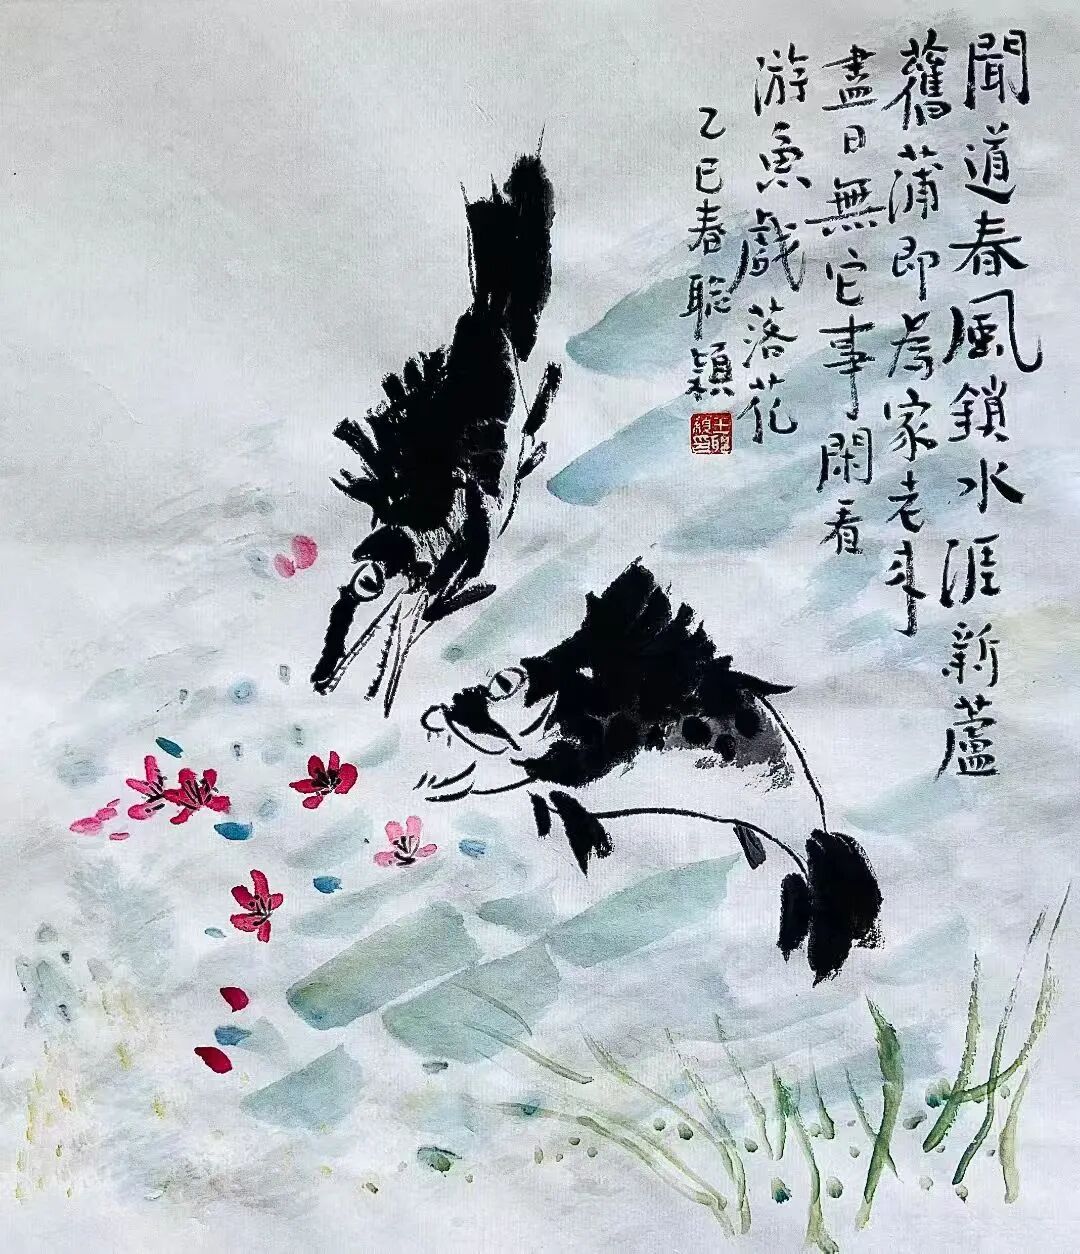 聞道春風鎖水涯新蘆
舊蒲即為家老来
盡日無它事閑看
游魚戲落花
乙巳春聡穎